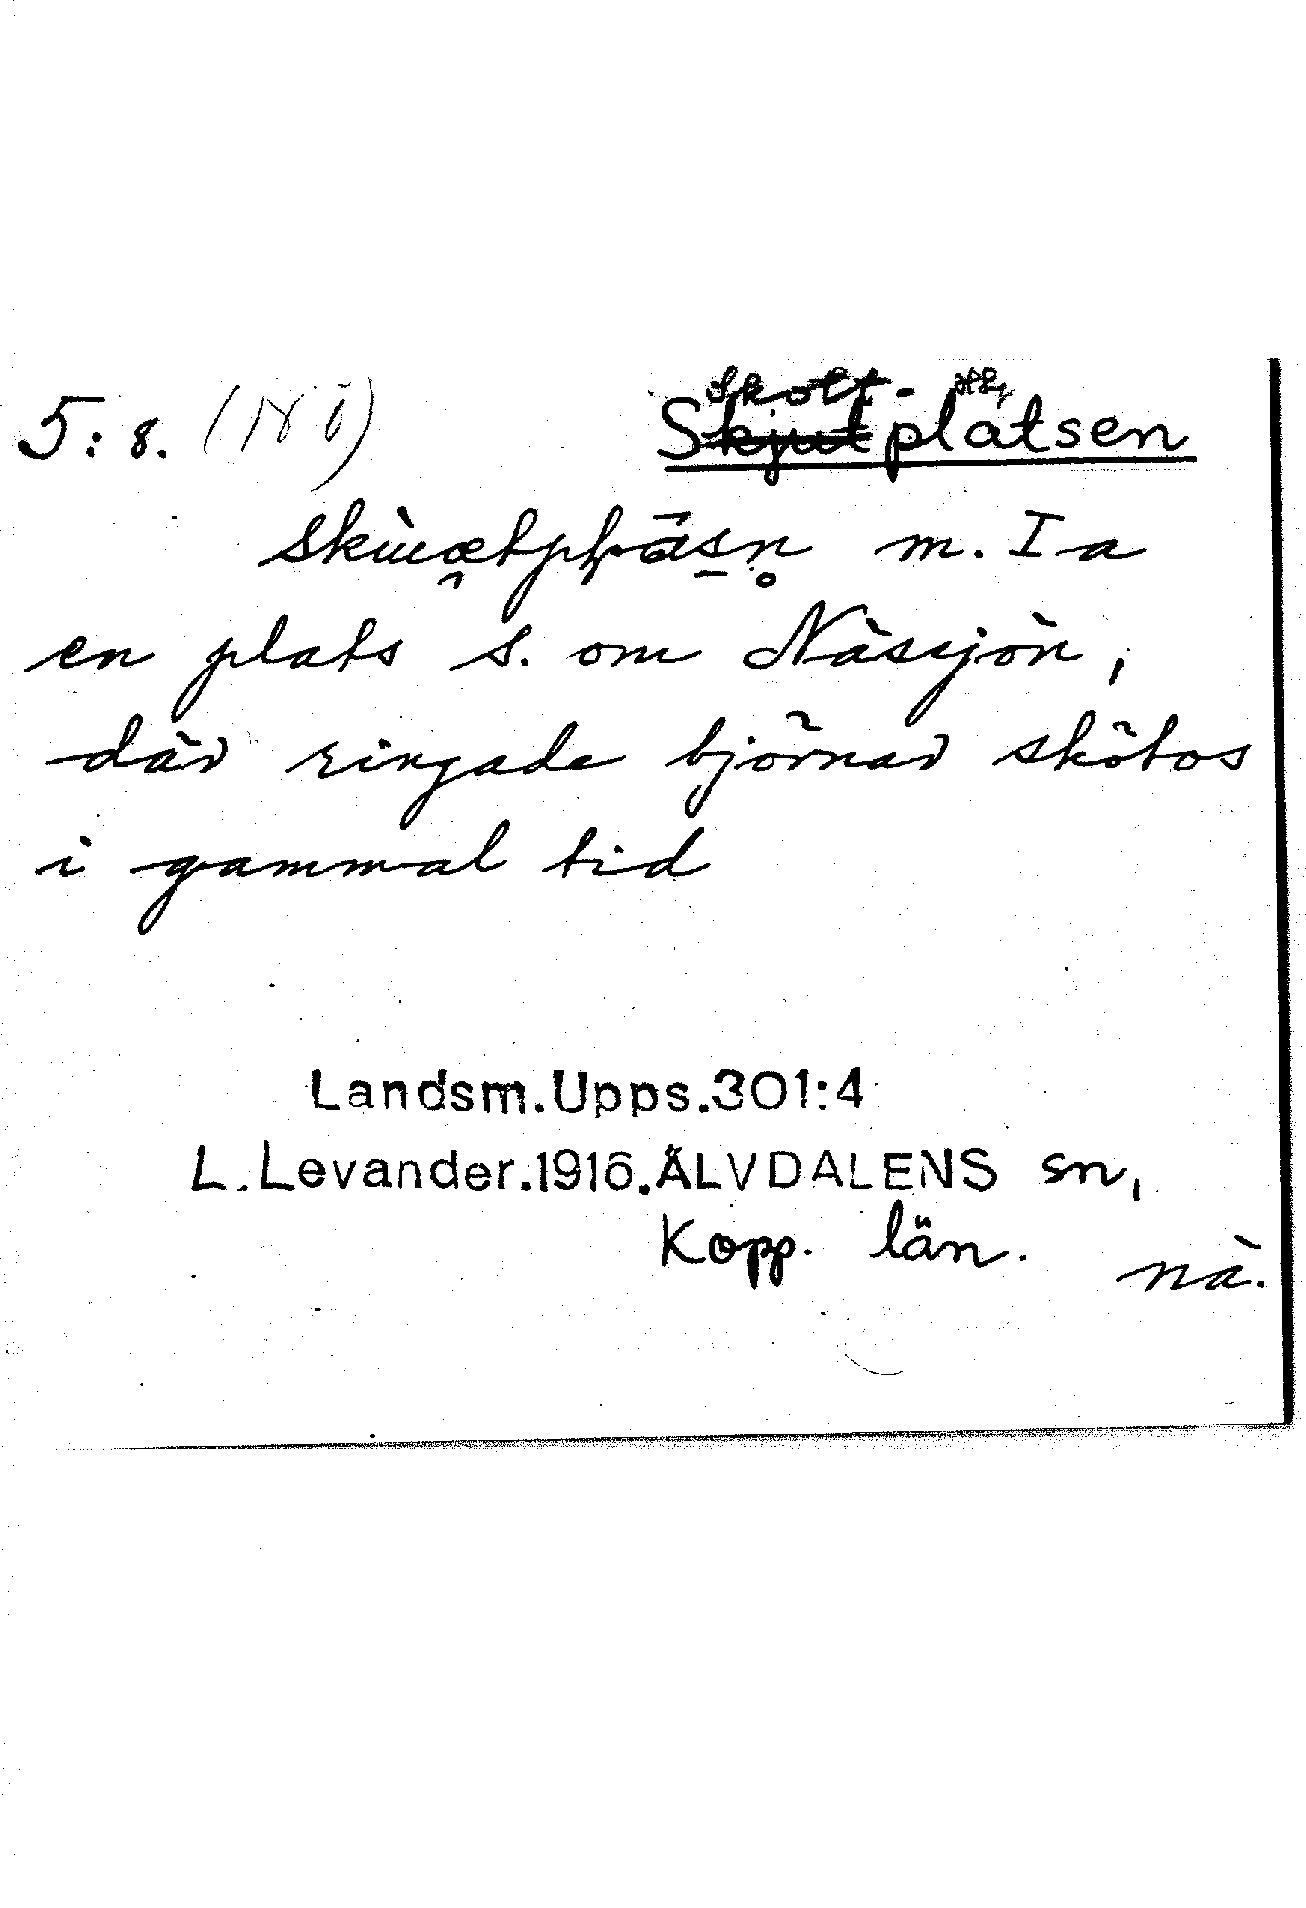 5:8. (N ö) Skott-platsen
m. I a
en plats s. om Nässjön,
där ringade björnar skötos
i gammal tid
Landsm.Upps.301:4
L.Levander.1916.ÄLVDALENS sn,
Kopp. län.
nä.